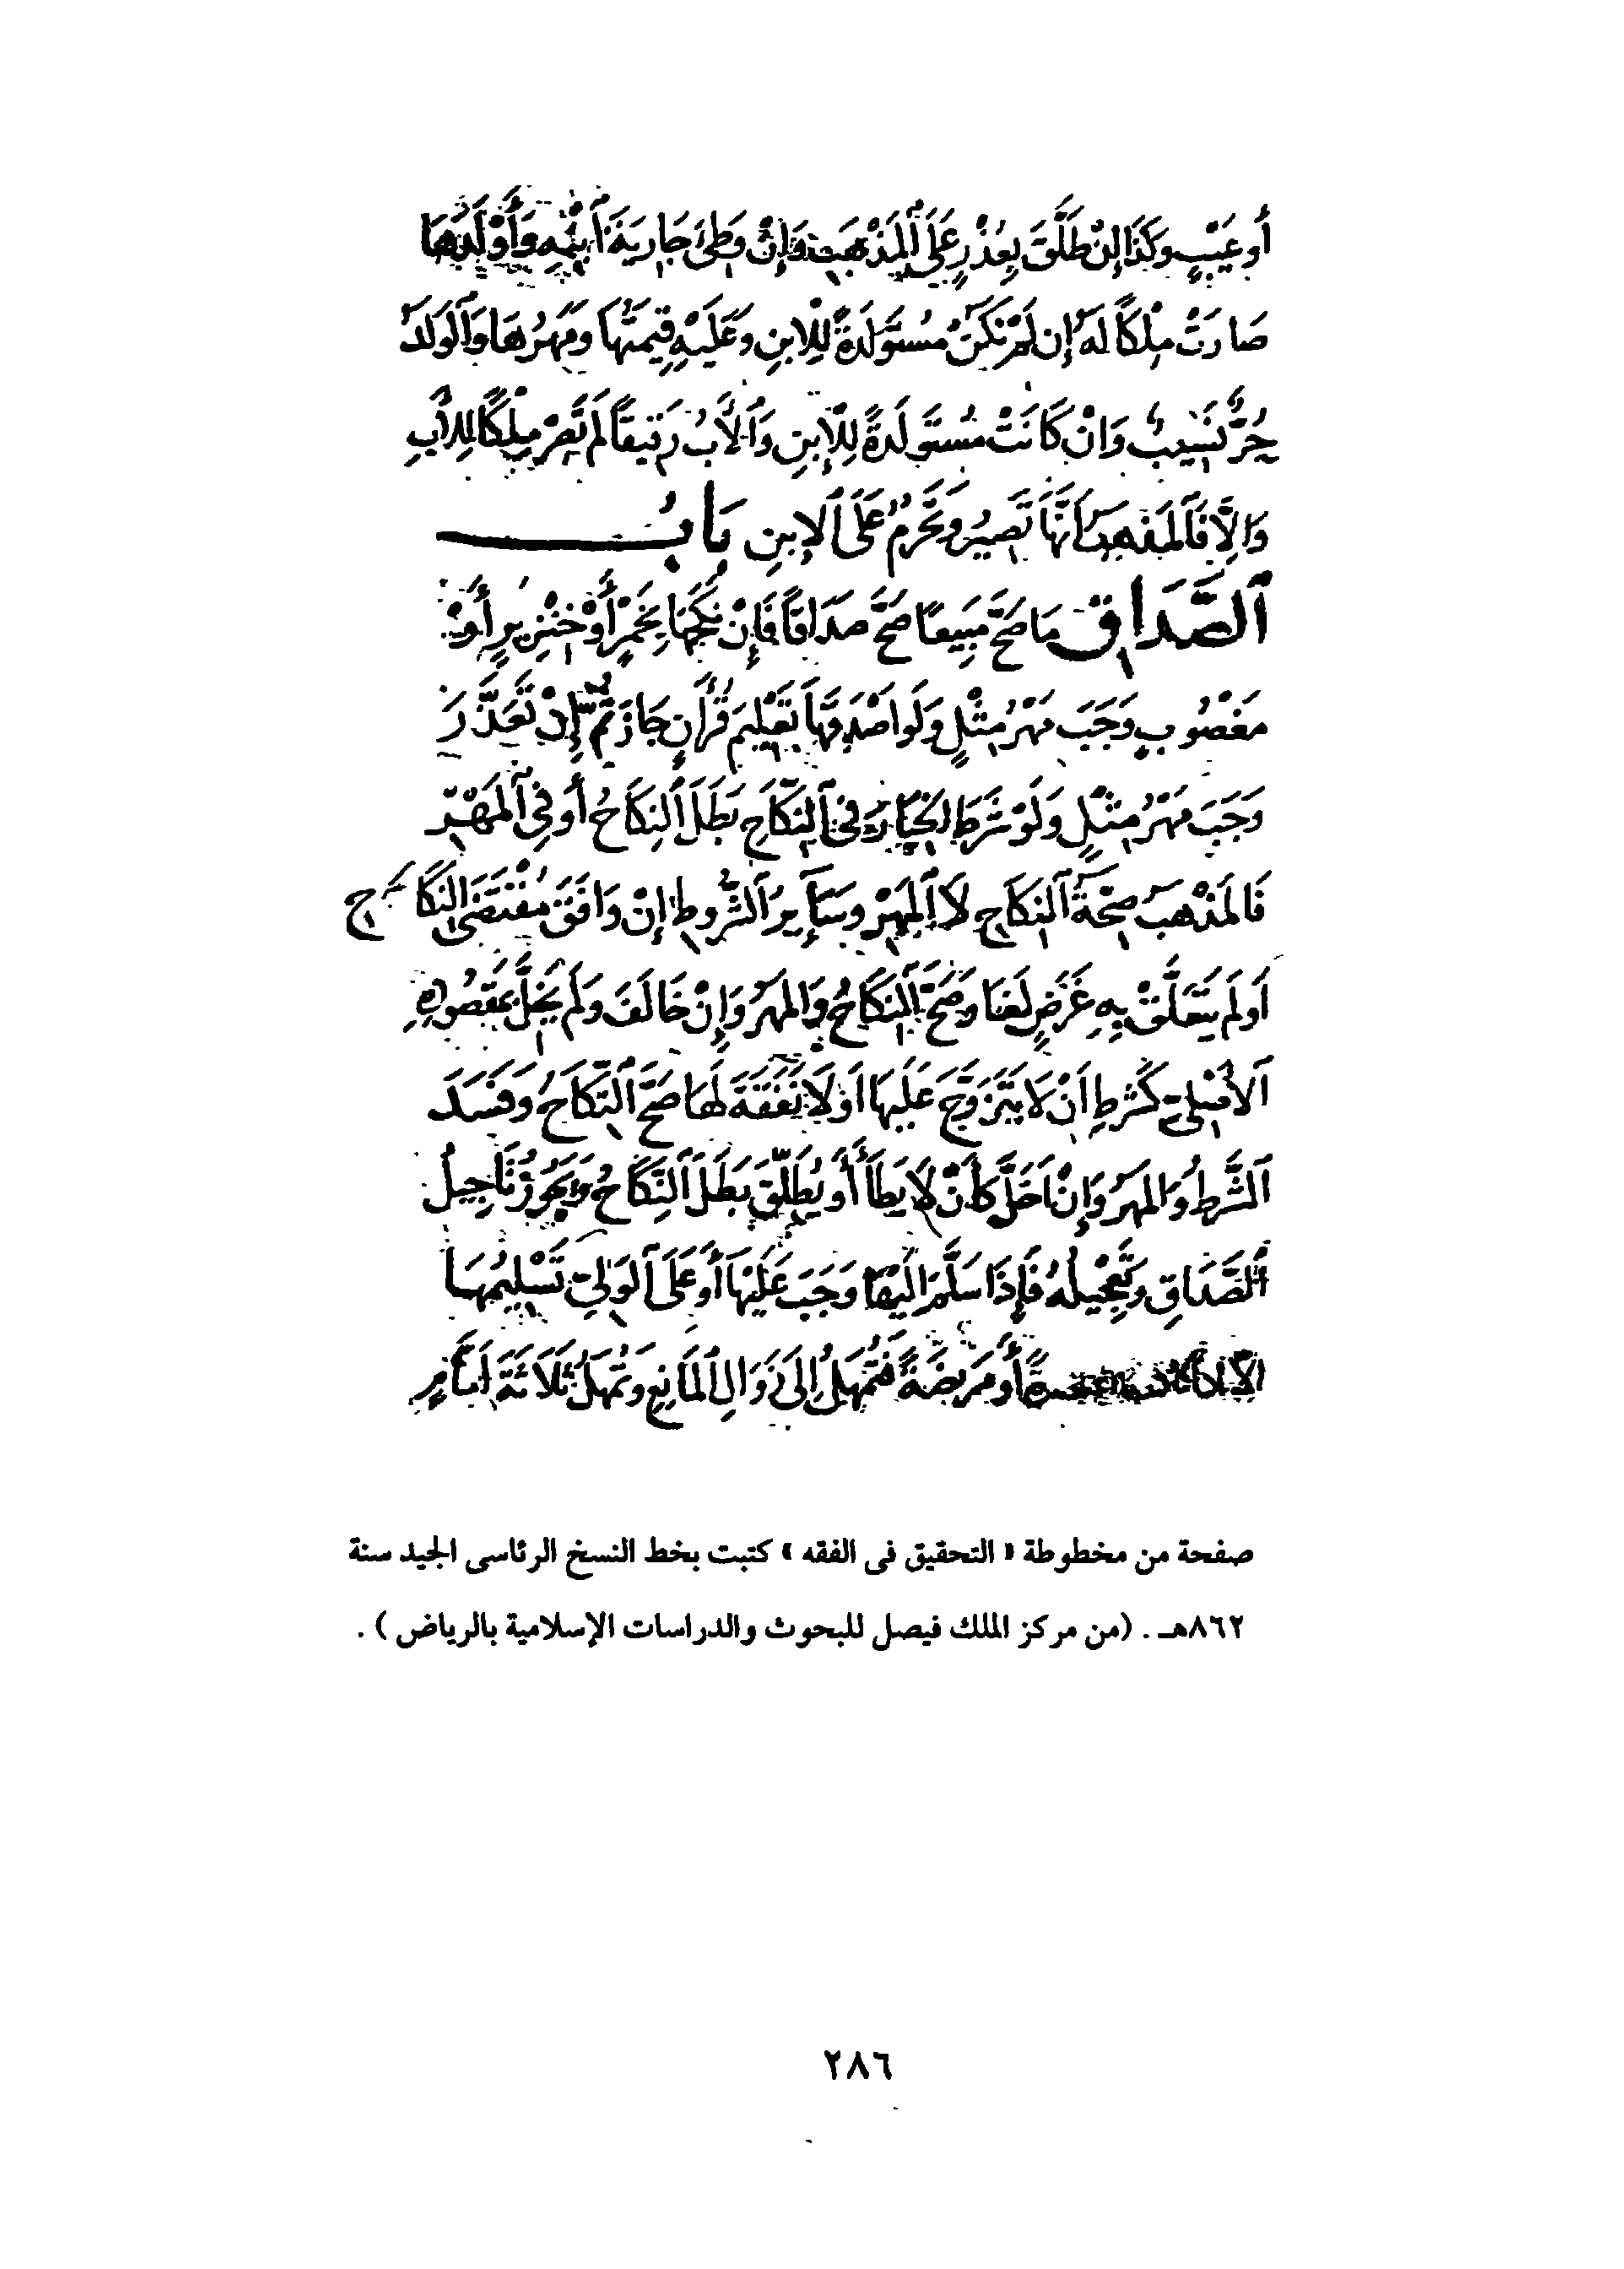 أو عَيْبٍ وَكَذَا إِنْ طَلَّقَ بِعُذْرٍ عَلَى الْمَذْهَبِ وَإِنْ وَطِئَ جَارِيَةَ ابْنِهِ وَأَوْلَدَهَا
صَارَتْ مِلْكًا لَهُ إِن لَمْ تَكُنْ مُسْتَوْلَدَةً لِلِابنِ وَعَلَيْهِ قِيمَتُهَا وَمَهْرُهَا وَالْوَلَدُ
حُرٌّ نَسِيبٌ وَانْ كَانَتْ مُسْتَوْلَدَةً لِلْإِبنِ وَالْأَبُ رَقِيقًا لَمْ تَصِرْ مِلْكًا لِلْأَبِ
وَإِلَّا فَالْمَذْهَب أَنَّهَا تَصِيرُ وَتَحْرُمُ عَلَى الإبنِ بَابُ
الصَّدَاقِ مَا صَحَّ مَبِيعًا صَحَّ صَدَاقًا فَإِنْ نَكَحَهَا بِخَمْرٍ أَوْ خِنْزِيرٍ أَوْ
مَغْصُوبٍ وَجَبَ مَهْرُ مِثْلٍ وَلَو اصْدَقَهَا تَعْلِيمَ قُرْآنٍ جَازَ ثُمَّ إِنْ تَعَذَّرَ
وَجَبَ مَهْرُ مِثْلٍ وَلَوْ شَرَطَ الْخِيَارَ فِي النِّكَاحِ بَطَلَ النِّكَاحُ أَو فِي الْمَهْرِ
فَالمَذْهَبُ صِحَّةُ النِّكَاحِ لَا الْمَهْرِ وَسَائِرُ الشُّرُوطِ إِنْ وَافَقَ مُقْتَضَى النِّكَاحِ
اَو لَمْ يَتَعَلَّقْ بِهِ غَرَضٍ لَغَا وَصَحَّ النِّكَاحُ وَالمَهْرُ وَإِنْ خَالَفَ وَلَمْ يُخِلَّ بِمَقْصُودِهِ
الأَصْلِيِّ كَشَرطِ أَنْ لَا يَتَزَوَّجَ عَلَيْهَا اَوْ لَا نَفَقَةَ لَهَا صَحَّ النِّكَاحُ وَفَسَدَ
الشَّرطُ وَالمَهْرُ وَإِنْ اَخَلَّ كَأَنْ لَا يَطَأَ أَو يُطَلِّقَ بَطَلَ النِّكَاحُ وَيَجُوزُ تَأجِيلُ
الصَّدَاقِ وَتَعْجِيلُهُ فَإِذَا سَلَّمَ الَيْهَا وَجَبَ عَلَيْهَا أَو عَلَى الْوَلِيِّ تَسْلِيمُهَا
أَو مَرِيضَةً فَتُمْهَلُ إِلَى زَوَالِ الْمَانِعِ وَتُمْهَلُ ثَلَاثَةَ أَيَّامٍ
صفحة من مخطوطة « التحقيق فى الفقه » كتبت بخط النسخ الرئاسى الجيد سنة
٨٦٢هـ . (من مركز الملك فيصل للبحوث والدراسات الإسلامية بالرياض ) .
٢٨٦